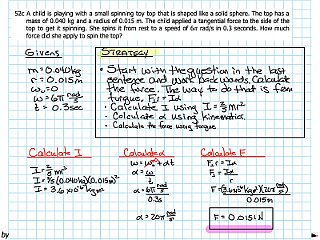 52c A child is playing with a small spinning toy top that is shaped like a solid sphere. The top has a
mass of 0.040 kg and a radius of 0.015 m. The child applied a tangential force to the side of the
top to get it spinning. She spins it from rest to a speed of 6π rad/s in 0.3 seconds. How much
force did she apply to spin the top?
Givens
m=0.040kg
r=0.015m
ω₀=0
ω=6π rad/s
t=0.3sec
STRATEGY
• Start with the question in the last
sentence and work backwards. Calculate
the force. The way to do that is from
torque. Fr=Iα
• Calculate I using I=2/5mr²
• Calculate α using kinematics.
• Calculate the force using torque
Calculate I
I=2/5mr²
I=2/5(0.040kg)(0.015m)²
I=3.6x10⁻⁶kgm²
Calculate α
ω=ω₀+αt
α=ω/t
α=6π rad/s
0.3s
α=20π rad/s²
Calculate F
Fr=Iα
F=Iα/r
F=(3.6x10⁻⁶kgm²)(20π rad/s²)
0.015m
F=0.015N
by